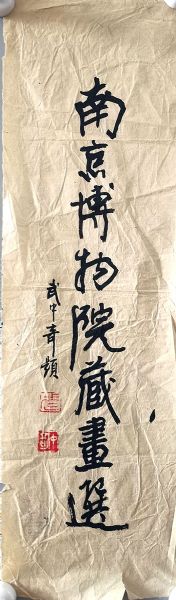 南京博物院藏畫選
武中奇題